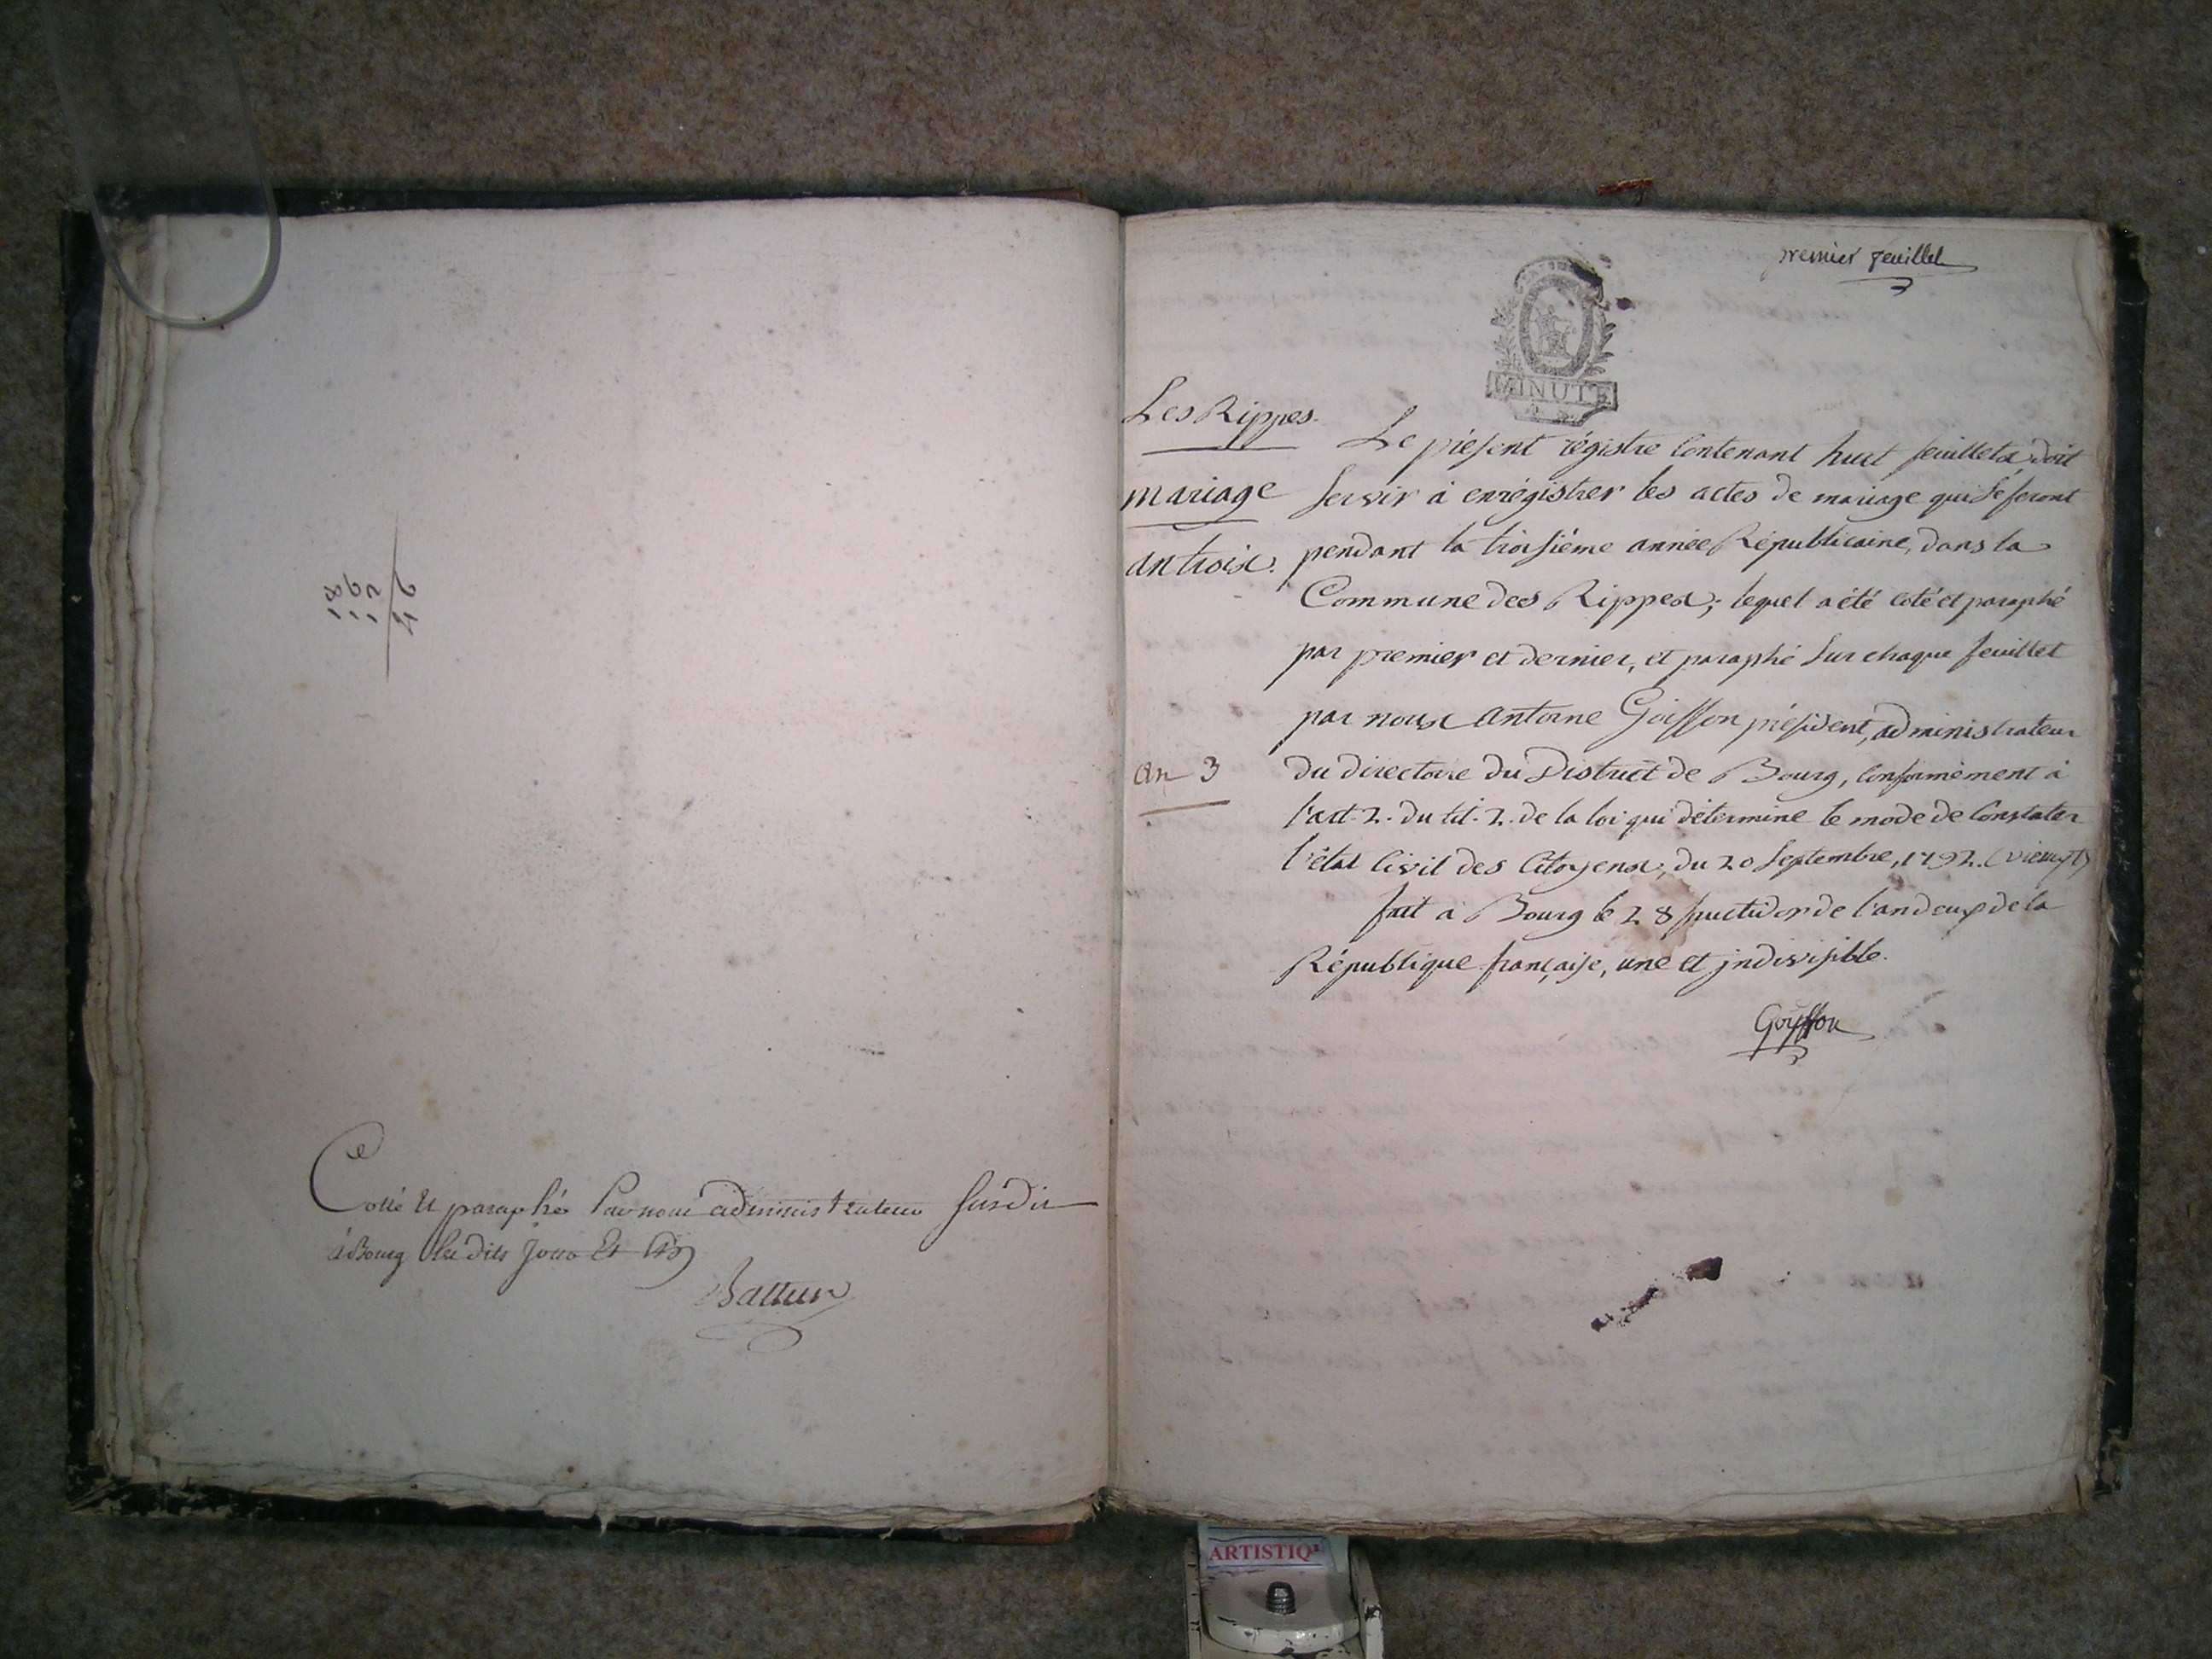 Cotté et paraphé Par nous administrateur susdit
à Bourg lesdits Jour Et an
Battur
premier feuillet
MINUTE
Les Rippes.
mariage
an trois.
an 3
Le présent régistre contenant huit feuillets doit
servir à enrégistrer les actes de mariage qui se feront
pendant la troisième année Républicaine, dans la
Commune des Rippes; lequel a été coté et paraphé
par premier et dernier, et paraphé sur chaque feuillet
par nous antoine Goiffon président, administrateur
du directoire du District de Bourg, conformément à
l'art. 2. du tit. 2. de la loi qui détermine le mode de constater
l'état civil des citoyens, du 20 septembre, 1792. (vieux st)
fait à Bourg le 28 fructidor de l'an deux de la
République française, une et indivisible.
Goiffon
ARTISTIQ